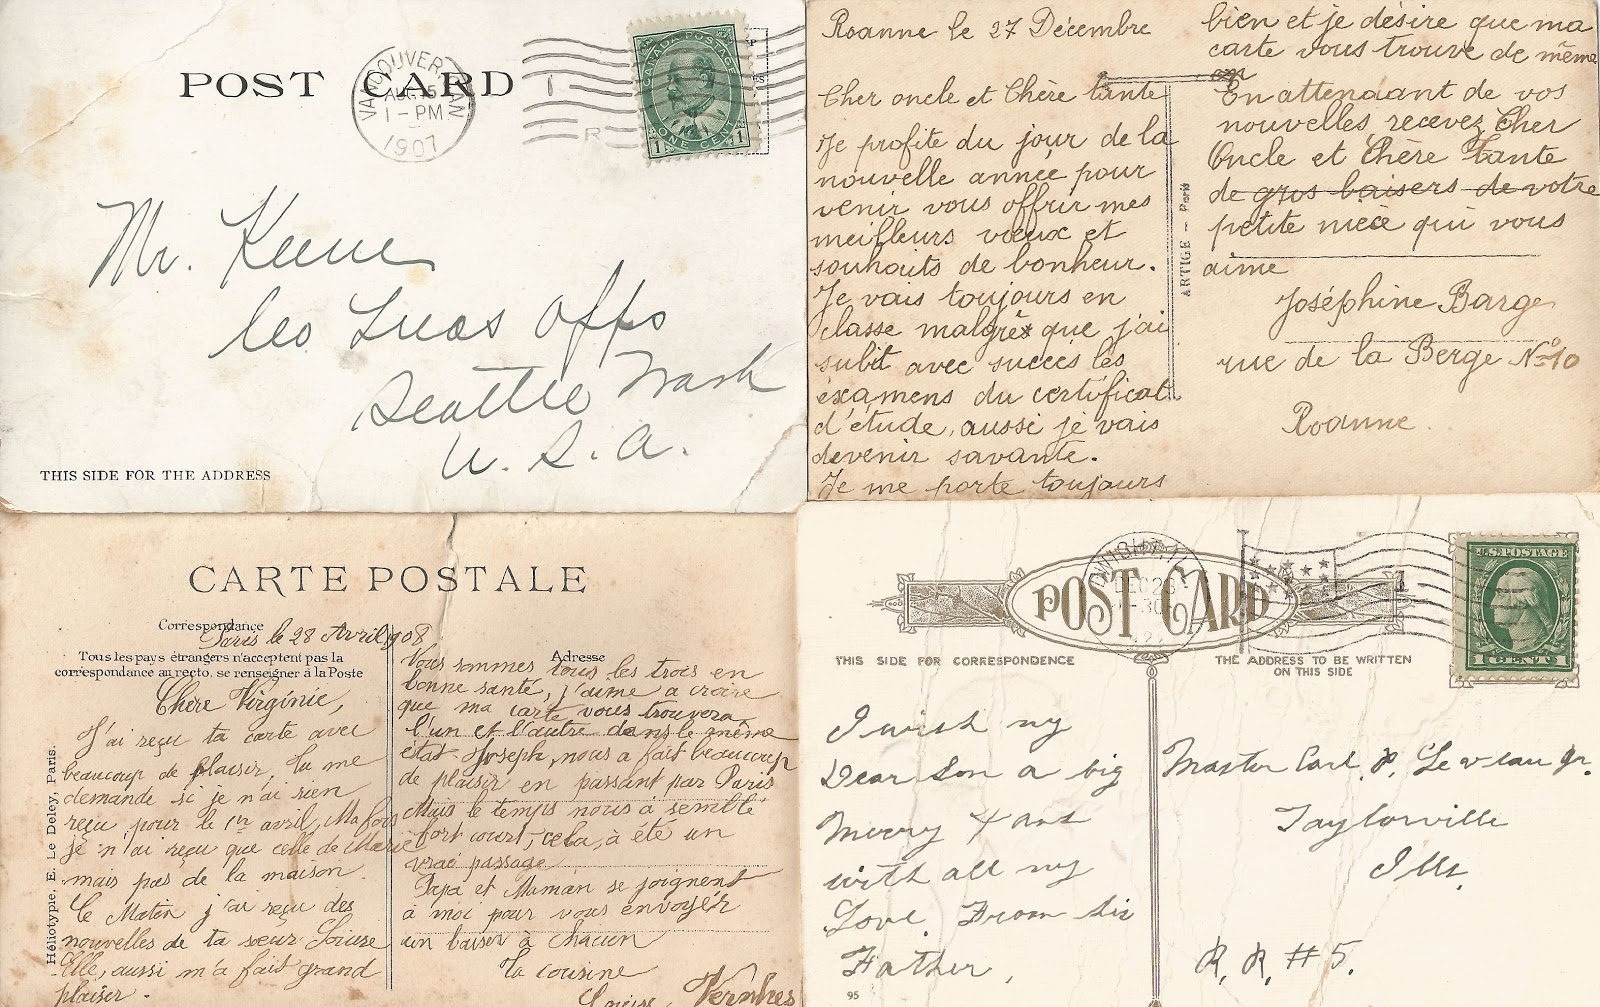 POST CARD
VANCOUVER, CAN
AUG 15
1 - PM
1907
CANADA POSTAGE
ONE CENT
1 1
Mr. Keene
Seattle Wash
U. S. A.
THIS SIDE FOR THE ADDRESS
Roanne le 27 Décembre
Cher oncle et Chère tante
Je profite du jour de la
nouvelle année pour
venir vous offrir mes
meilleurs vœux et
souhaits de bonheur.
Je vais toujours en
classe malgrès que j'ai
subit avec succès les
éxamens du certificat
d'étude, aussi je vais
devenir savante.
Je me porte toujours
ARTIGE - Paris
bien et je désire que ma
carte vous trouve de même
En attendant de vos
nouvelles recevez Cher
Oncle et Chère tante
de gros baisers de votre
petite nièce qui vous
aime
Joséphine Barge
rue de la Berge No 10
Roanne.
CARTE POSTALE
Correspondance
Paris le 28 Avril 908
Tous les pays étrangers n'acceptent pas la
correspondance au recto, se renseigner à la Poste
Chère Virginie,
J'ai reçu ta carte avec
beaucoup de plaisir, tu me
demande si je n'ai rien
reçu pour le 1er avril, Ma fois
je n'ai reçu que celle de Marie
mais pas de la maison.
Ce Matin j'ai reçu des
nouvelles de ta sœur
Elle, aussi m'a fait grand
plaisir.
Héliotypie, E. Le Deley, Paris.
Adresse
Vous sommes tous les trois en
bonne santé, j'aime a croire
que ma carte vous trouvera
l'un et l'autre dans le même
état. Joseph, nous a fait beaucoup
de plaisir en passant par Paris
Mais le temps nous à semblé
fort court, cela, à été un
vrai passage
Papa et Maman se joignent
à moi pour vous envoyer
un baiser à chacun
ta cousine
POST CARD
DEC 26
U.S. POSTAGE
1 CENT 1
THIS SIDE FOR CORRESPONDENCE
THE ADDRESS TO BE WRITTEN
ON THIS SIDE
I wish my
Dear Son a big
Merry Xmas
with all my
Love. From his
Father,
Master Carl P. Leveau Jr.
Taylorville
Ills.
R. R. #5.
95